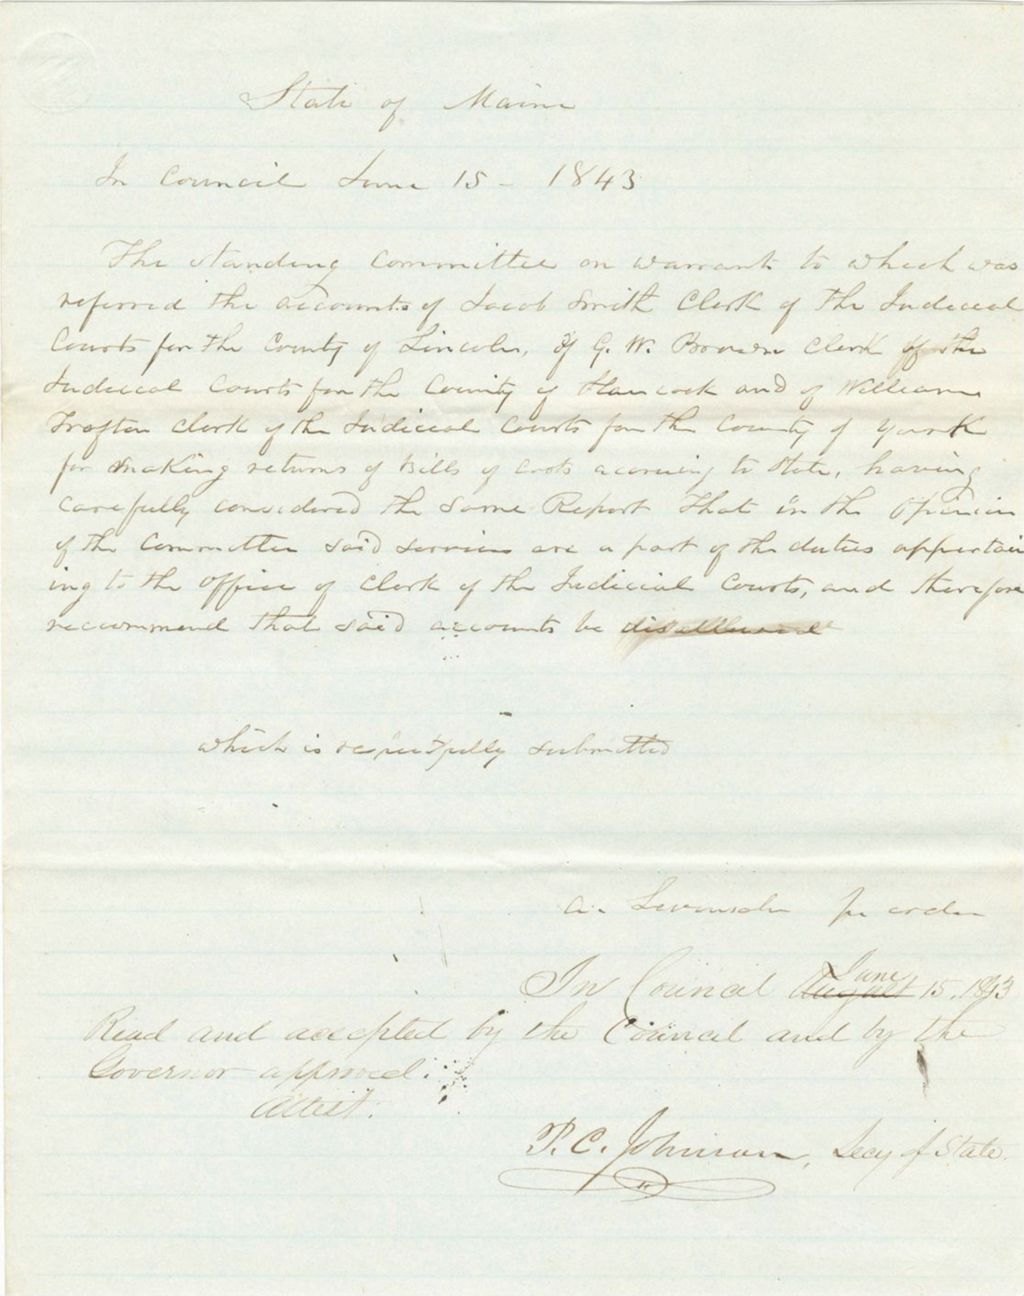 State of Maine
In Council June 15 - 1843
The standing Committee on warrants to which was
referred the accounts of Jacob Smith Clerk of the Judicial
Courts for the County of Lincoln, of G. W. Brown Clerk of the
Judicial Courts for the County of Hancock and of William
Trafton clerk of the Judicial Courts for the County of York
for making returns of Bills of costs accruing to State, having
carefully considered the same Report that in the opinion
of the Committee said services are a part of the duties appertain
ing to the office of Clerk of the Judicial Courts, and therefore
recommend that said accounts be disallowed
which is respectfully submitted
A. per order
In Council August June 15, 1843
Read and accepted by the Council and by the
Governor approved.
Attest.
P. C. Johnson, Secy of State.